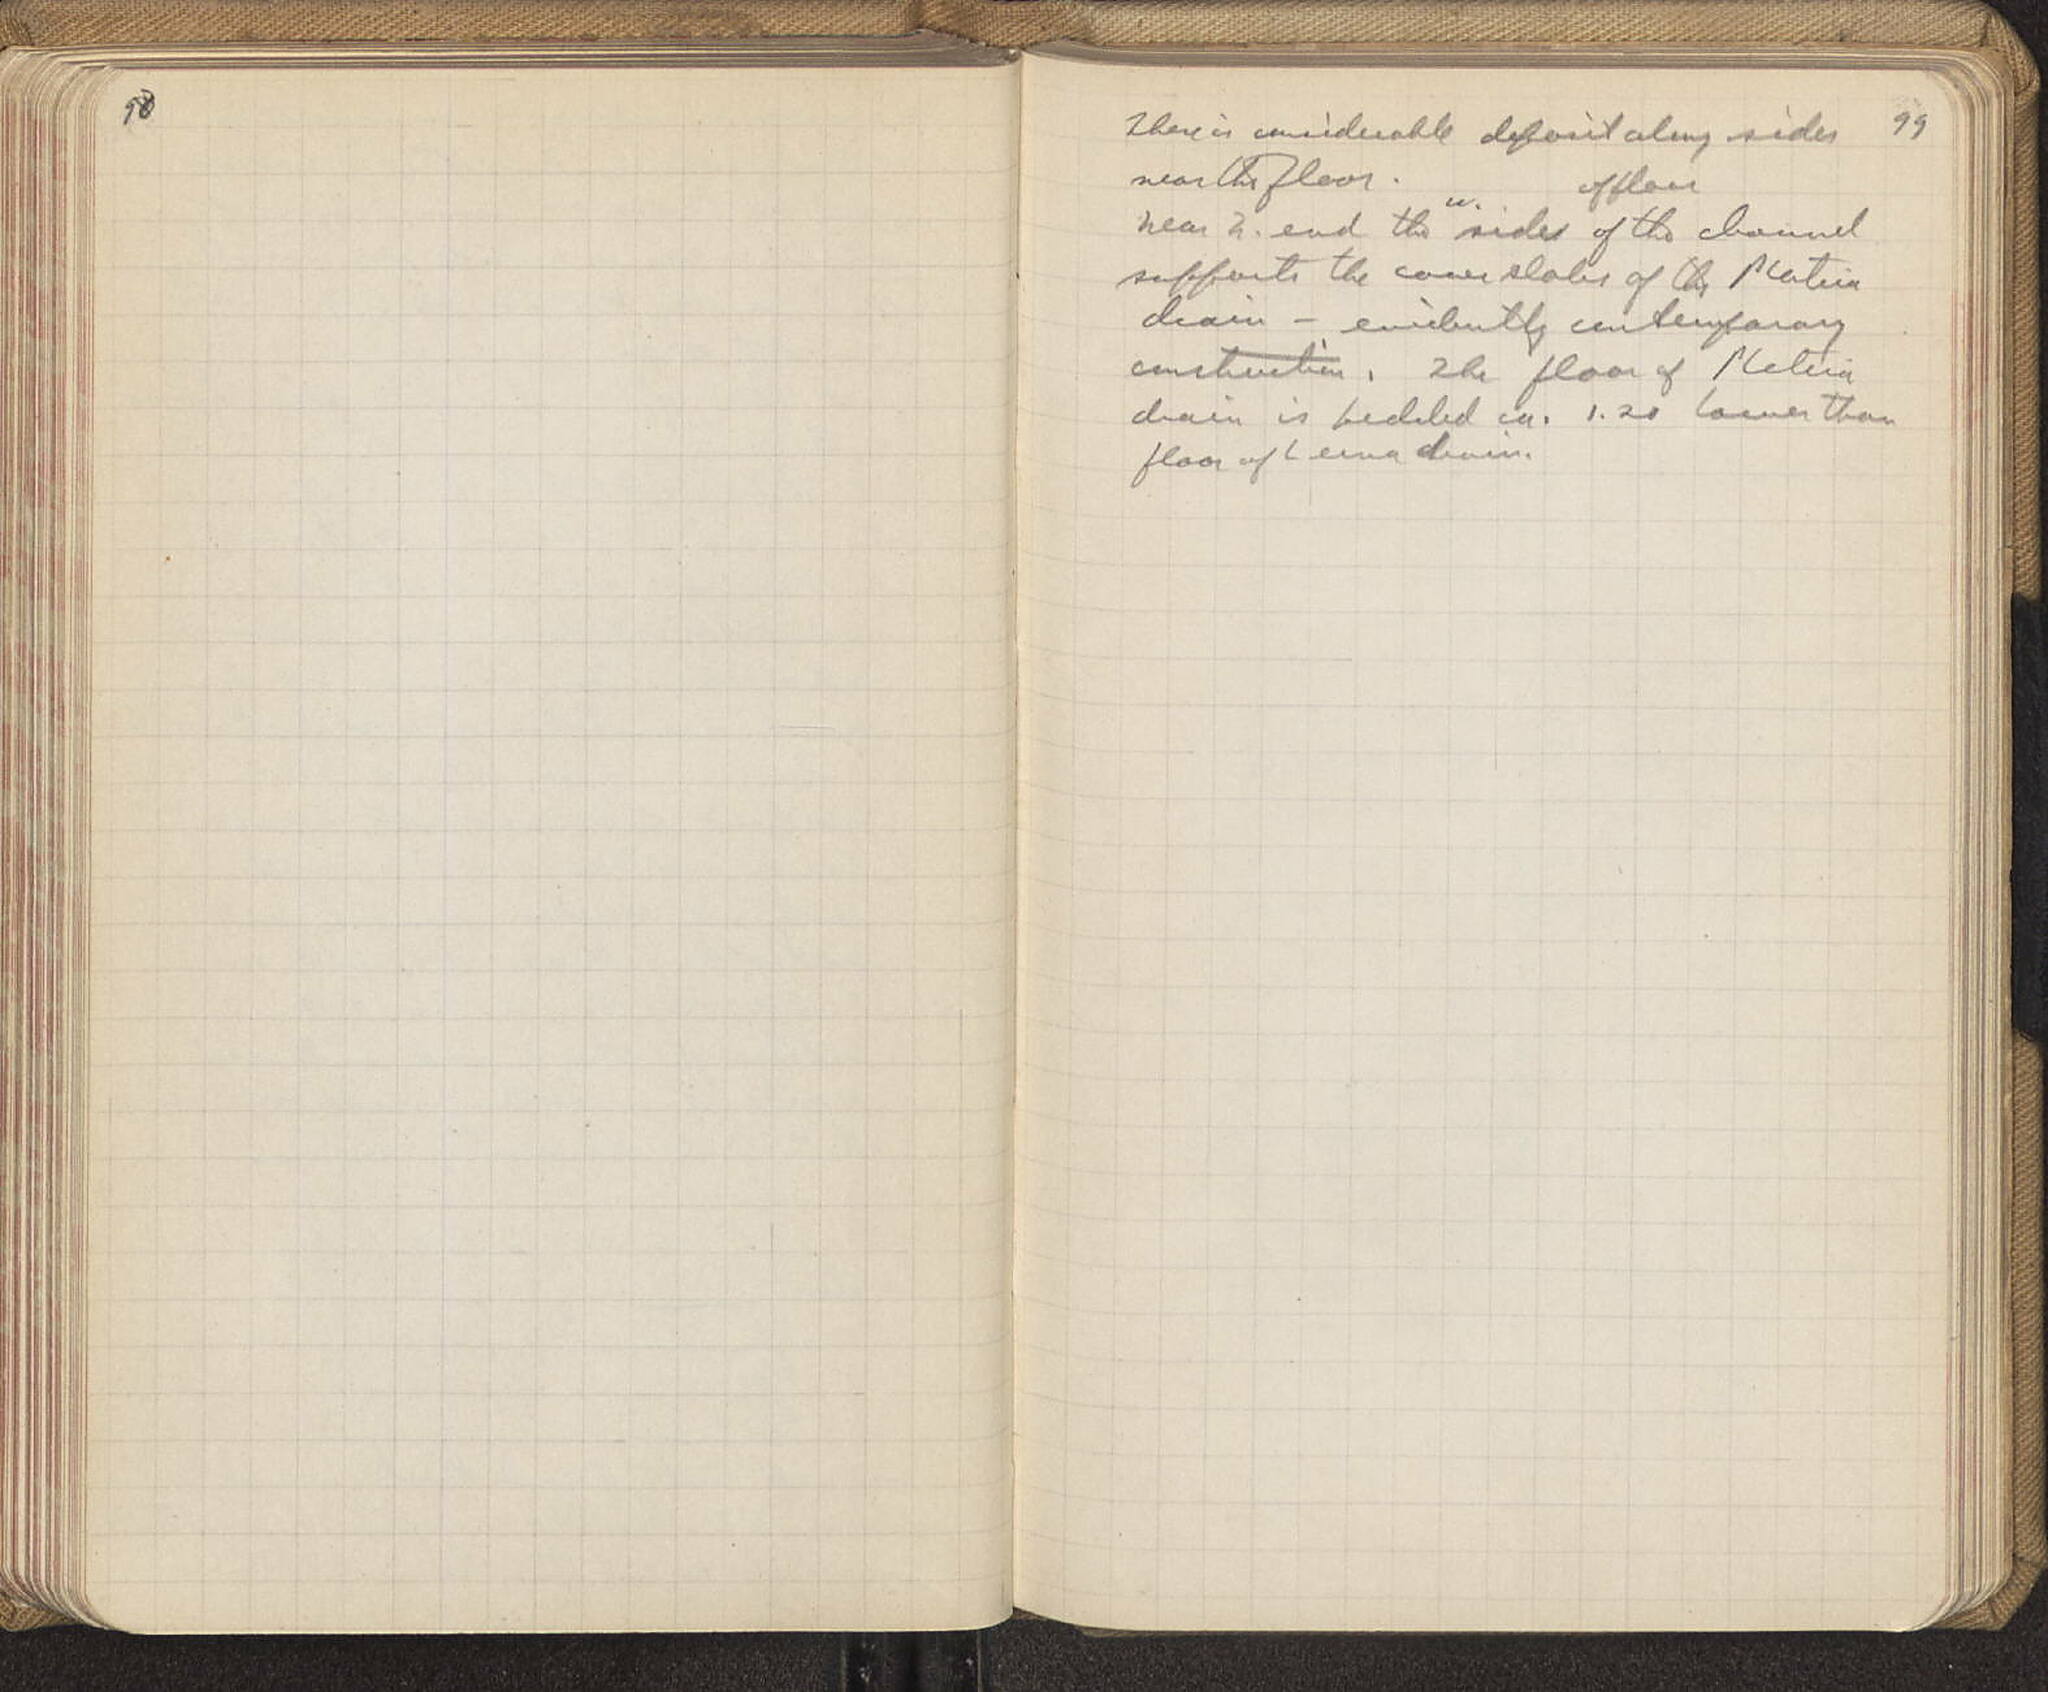 98
99
There is considerable deposit along sides
near the floor.
w. of floor
Near N. end the sides of the channel
supports the cover slabs of the Plateia
drain - evidently contemporary
construction. The floor of Plateia
drain is bedded ca. 1.20 lower than
floor of Lerna drain.